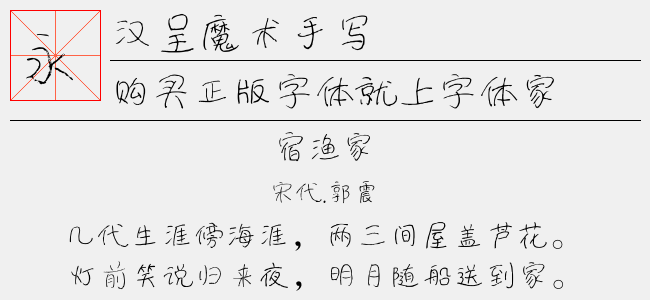 永
汉呈魔术手写
购买正版字体就上字体家
宿渔家
宋代.郭震
几代生涯傍海涯，两三间屋盖芦花。
灯前笑说归来夜，明月随船送到家。